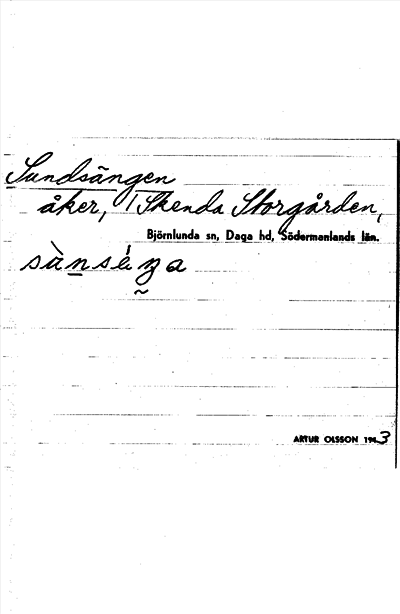 Sundsängen
åker, 1 Skenda Storgården,
Björnlunda sn, Daga hd, Södermanlands län.
ARTUR OLSSON 1943